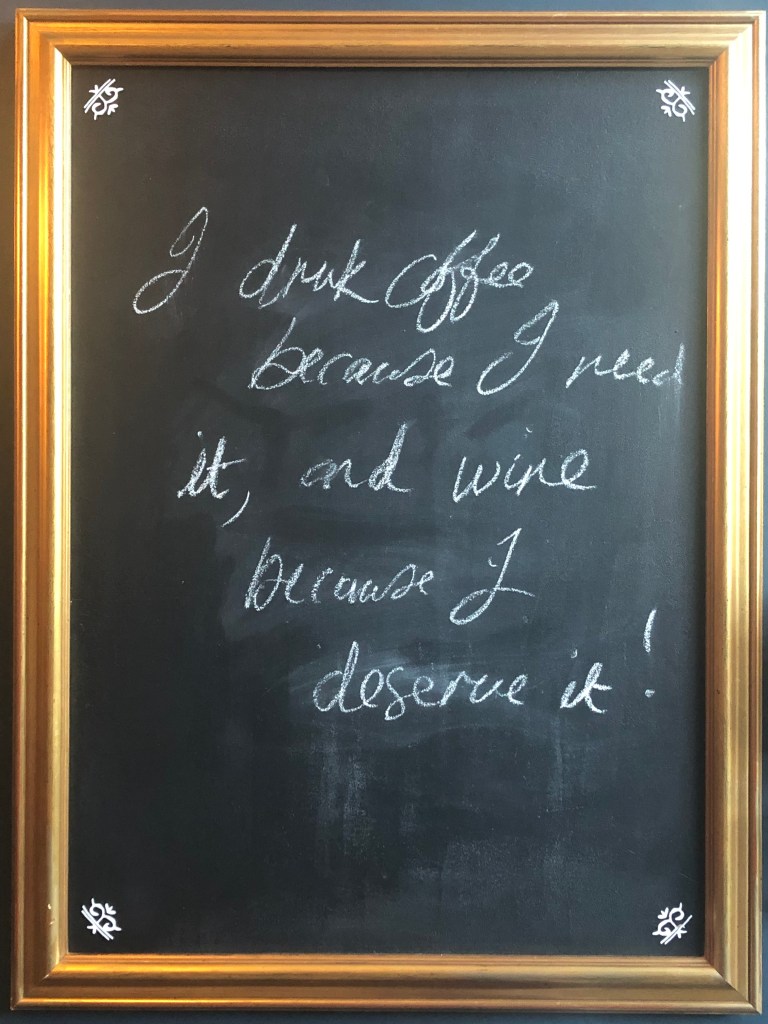 I drink coffee
because I need
it, and wine
because I
deserve it!